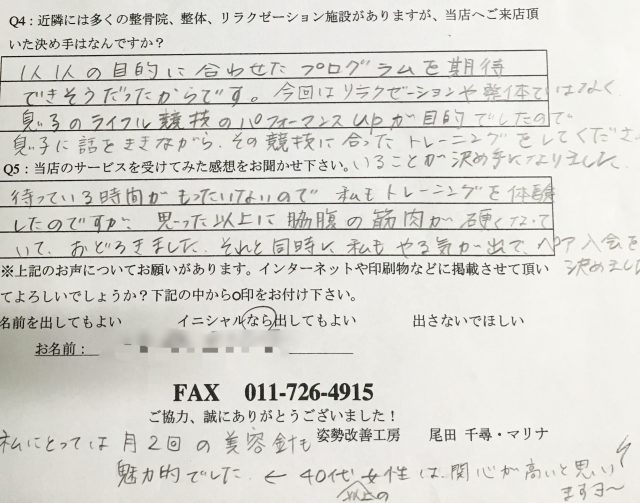 Q4：近隣には多くの整骨院、整体、リラクゼーション施設がありますが、当店へご来店頂
いた決め手はなんですか？
1人1人の目的に合わせたプログラムを期待
できそうだったからです。今回はリラクゼーションや整体ではなく
息子のライフル競技のパフォーマンスUPが目的でしたので
息子に話をききながら、その競技に合ったトレーニングをしてくださ
いることが決め手になりました。
Q5：当店のサービスを受けてみた感想をお聞かせ下さい。
待っている時間がもったいないので 私もトレーニングを体験
したのですが、思った以上に脇腹の筋肉が硬くなって
いて、おどろきました。それと同時に、私もやる気が出て、ペア入会を
決めました
※上記のお声についてお願いがあります。インターネットや印刷物などに掲載させて頂い
てよろしいでしょうか？下記の中から○印をお付け下さい。
名前を出してもよい イニシャルなら出してもよい 出さないでほしい
お名前：
FAX 011-726-4915
ご協力、誠にありがとうございました！
姿勢改善工房 尾田 千尋・マリナ
私にとっては月2回の美容針も
魅力的でした ← 40代以上の女性は関心が高いと思い
ますヨ〜